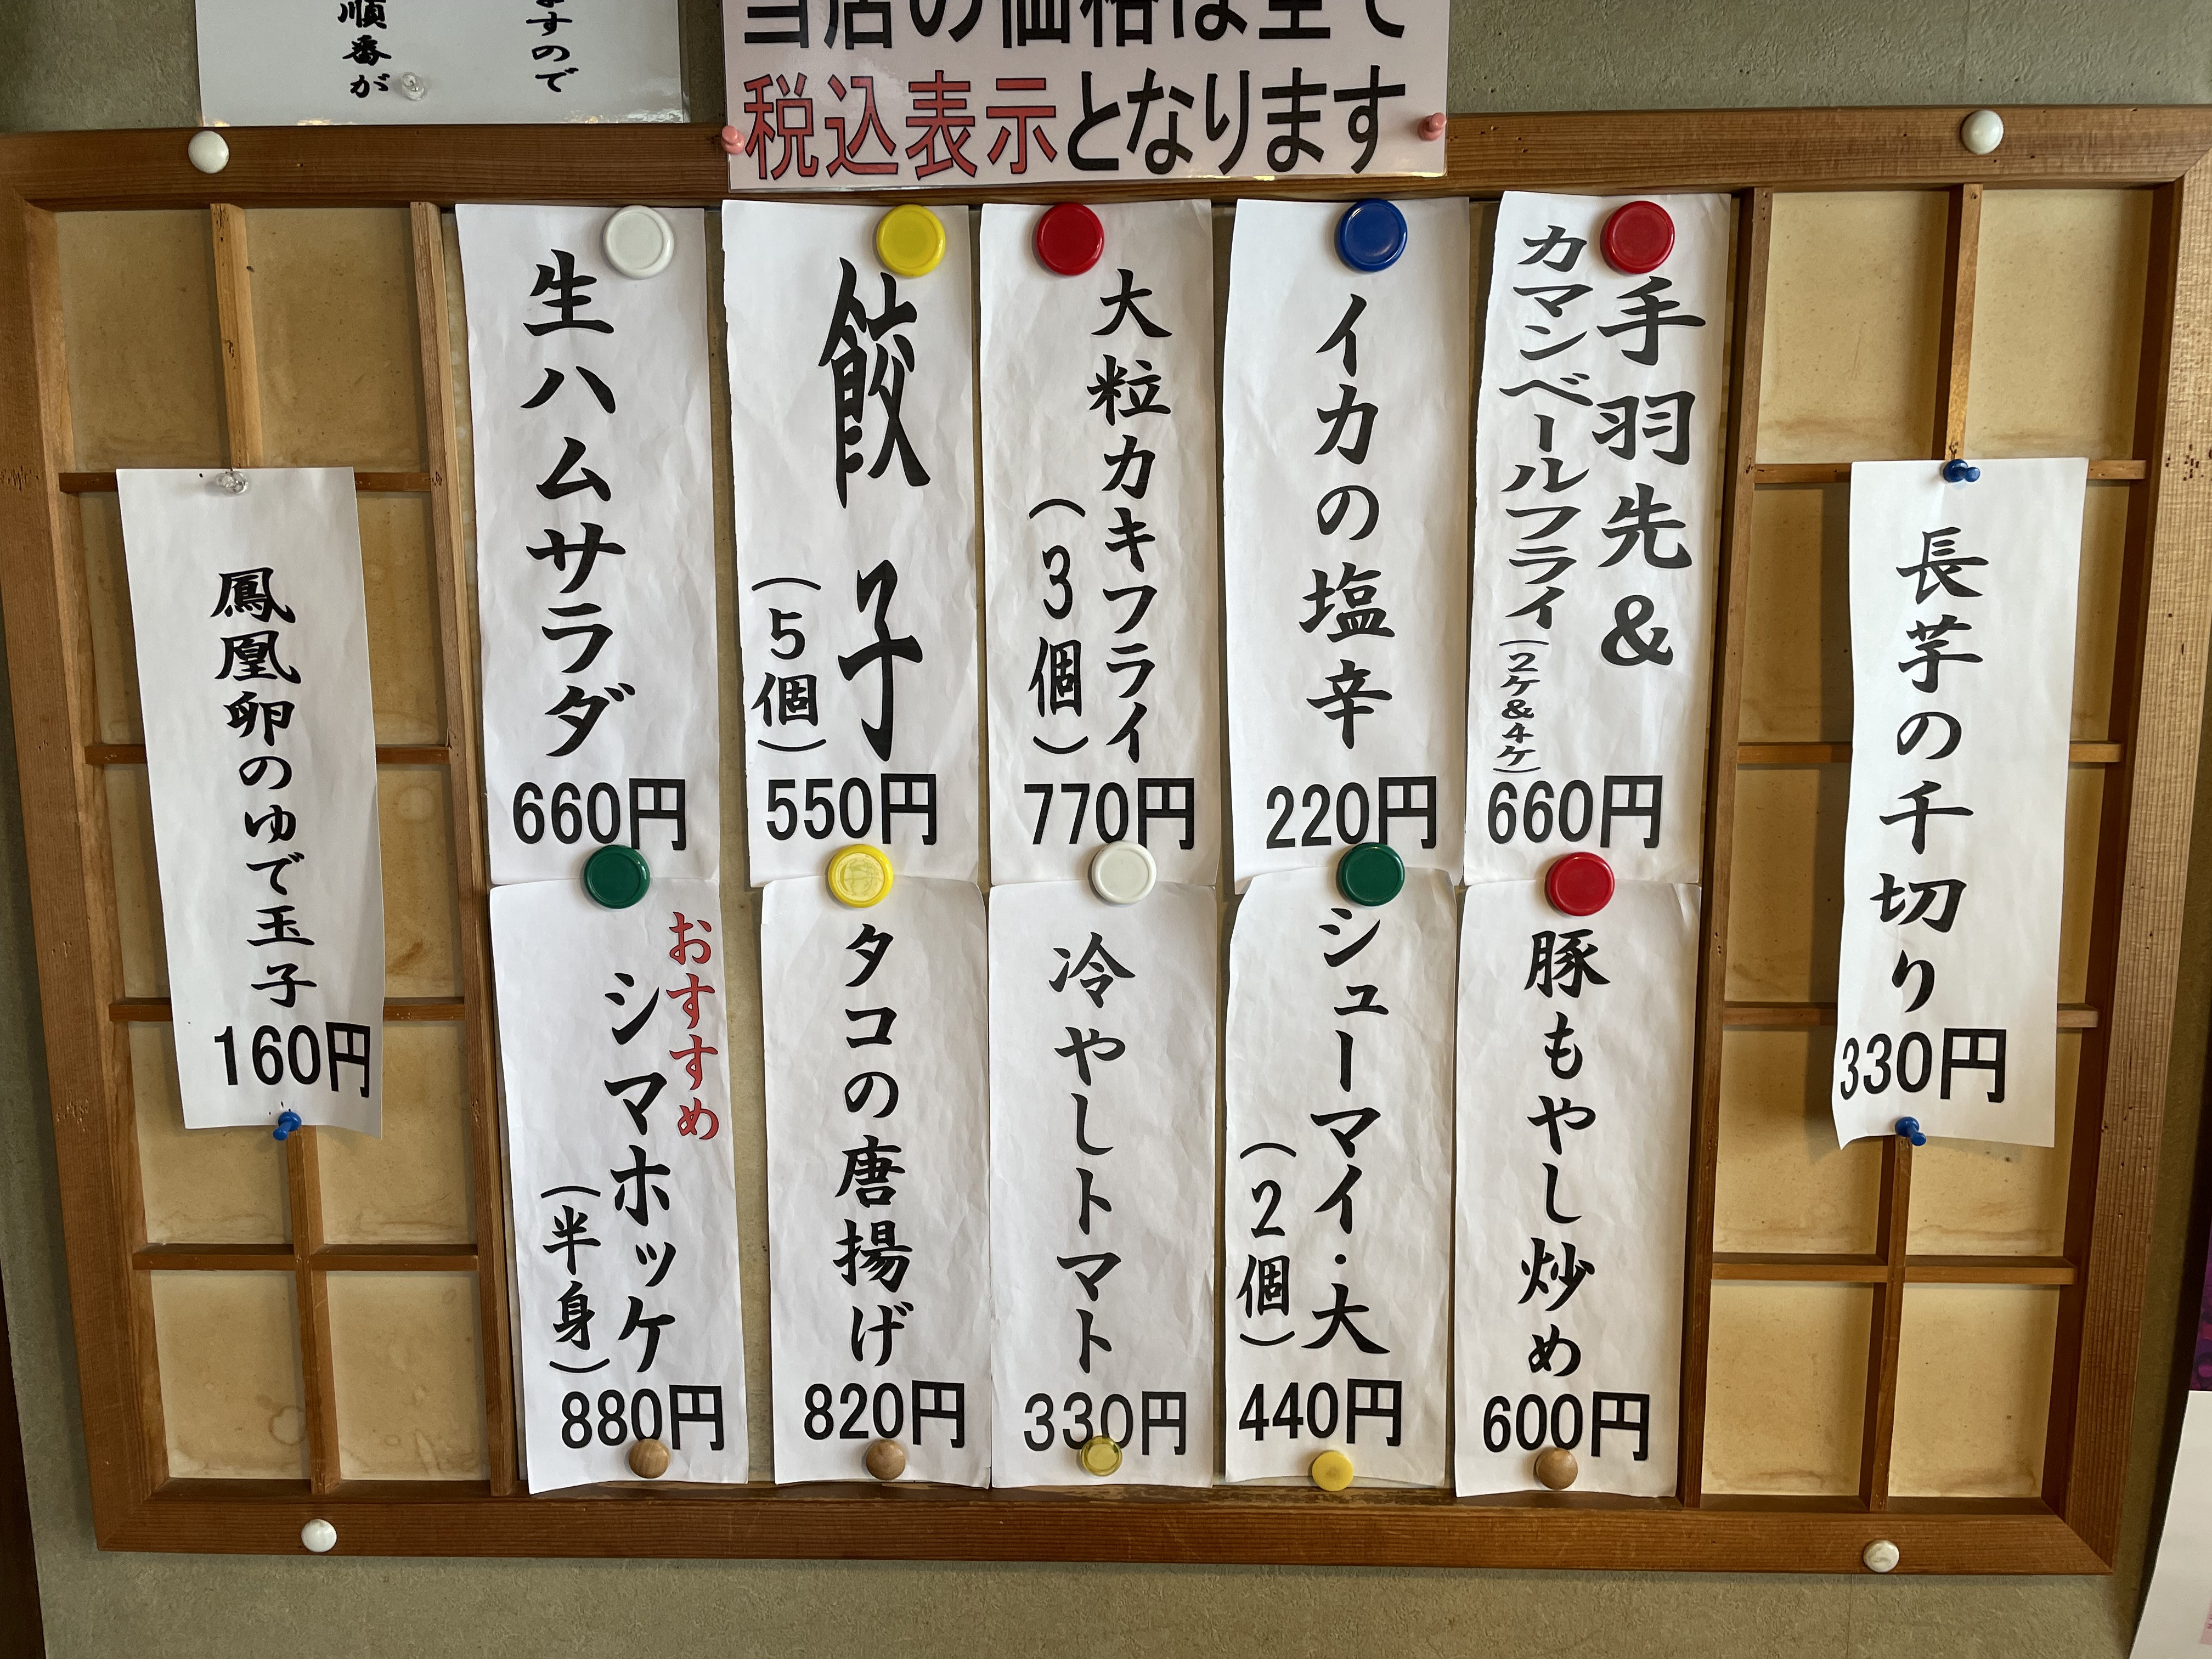 ますので
順番が
当店の価格は全て
税込表示となります
長芋の千切り
330円
手羽先&
カマンベールフライ(2ケ&4ケ)
660円
イカの塩辛
220円
大粒カキフライ
(3個)
770円
餃子
(5個)
550円
生ハムサラダ
660円
豚もやし炒め
600円
シューマイ・大
(2個)
440円
冷やしトマト
330円
タコの唐揚げ
820円
おすすめ
シマホッケ
(半身)
880円
鳳凰卵のゆで玉子
160円